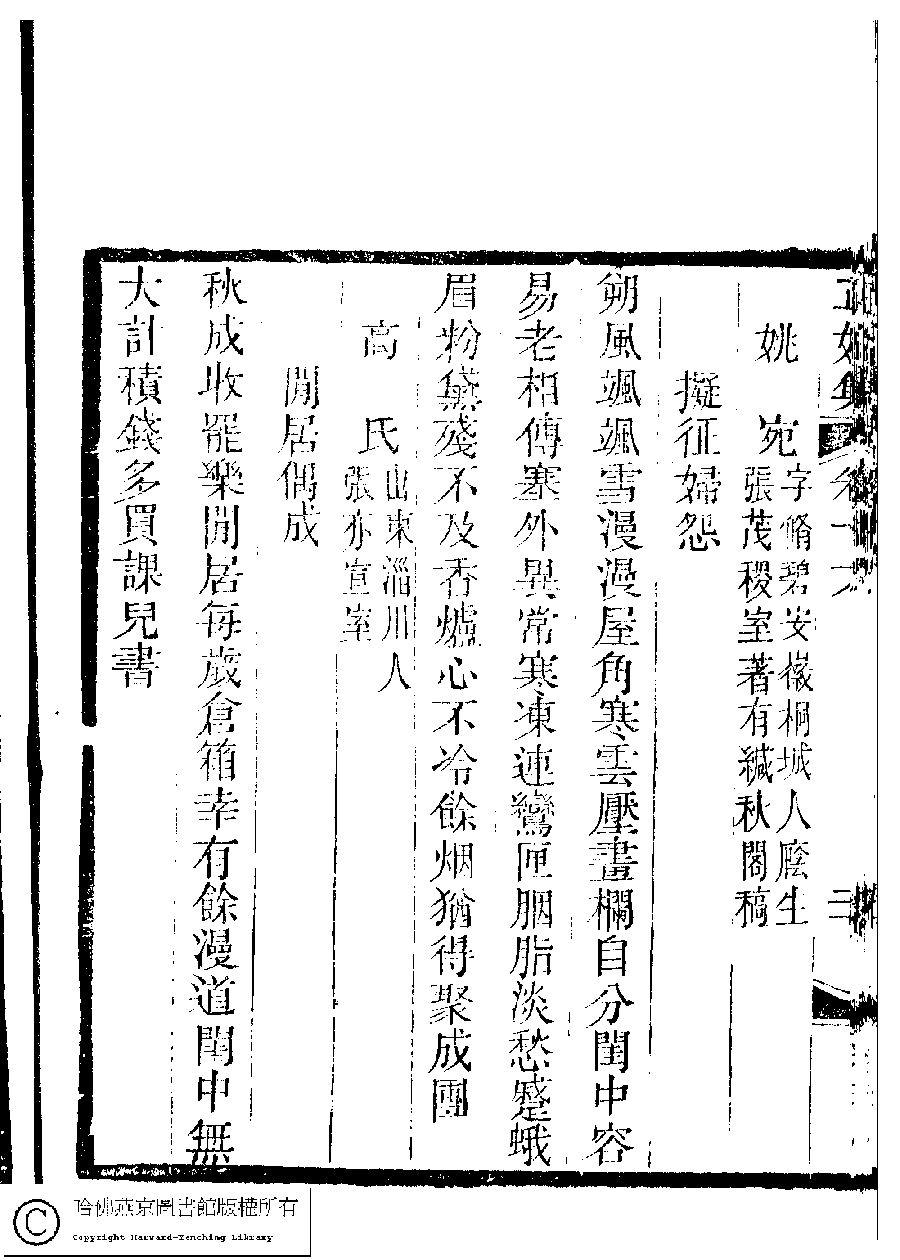 姚　宛字脩碧安徽桐城人廕生
張茂稷室著有緘秋閣稿
擬征婦怨
朔風颯颯雪漫漫屋角寒雲壓畫欄自分閨中容
易老相傳塞外異常寒凍連鸞匣胭脂淡愁蹙蛾
眉粉黛殘不及香爐心不冷餘烟猶得聚成團
高　氏山東淄川人
張亦宣室
閒居偶成
秋成收罷樂閒居每歲倉箱幸有餘漫道閨中無
大計積錢多買課兒書
哈佛燕京圖書館版權所有
Copyright Harvard-Yenching Library